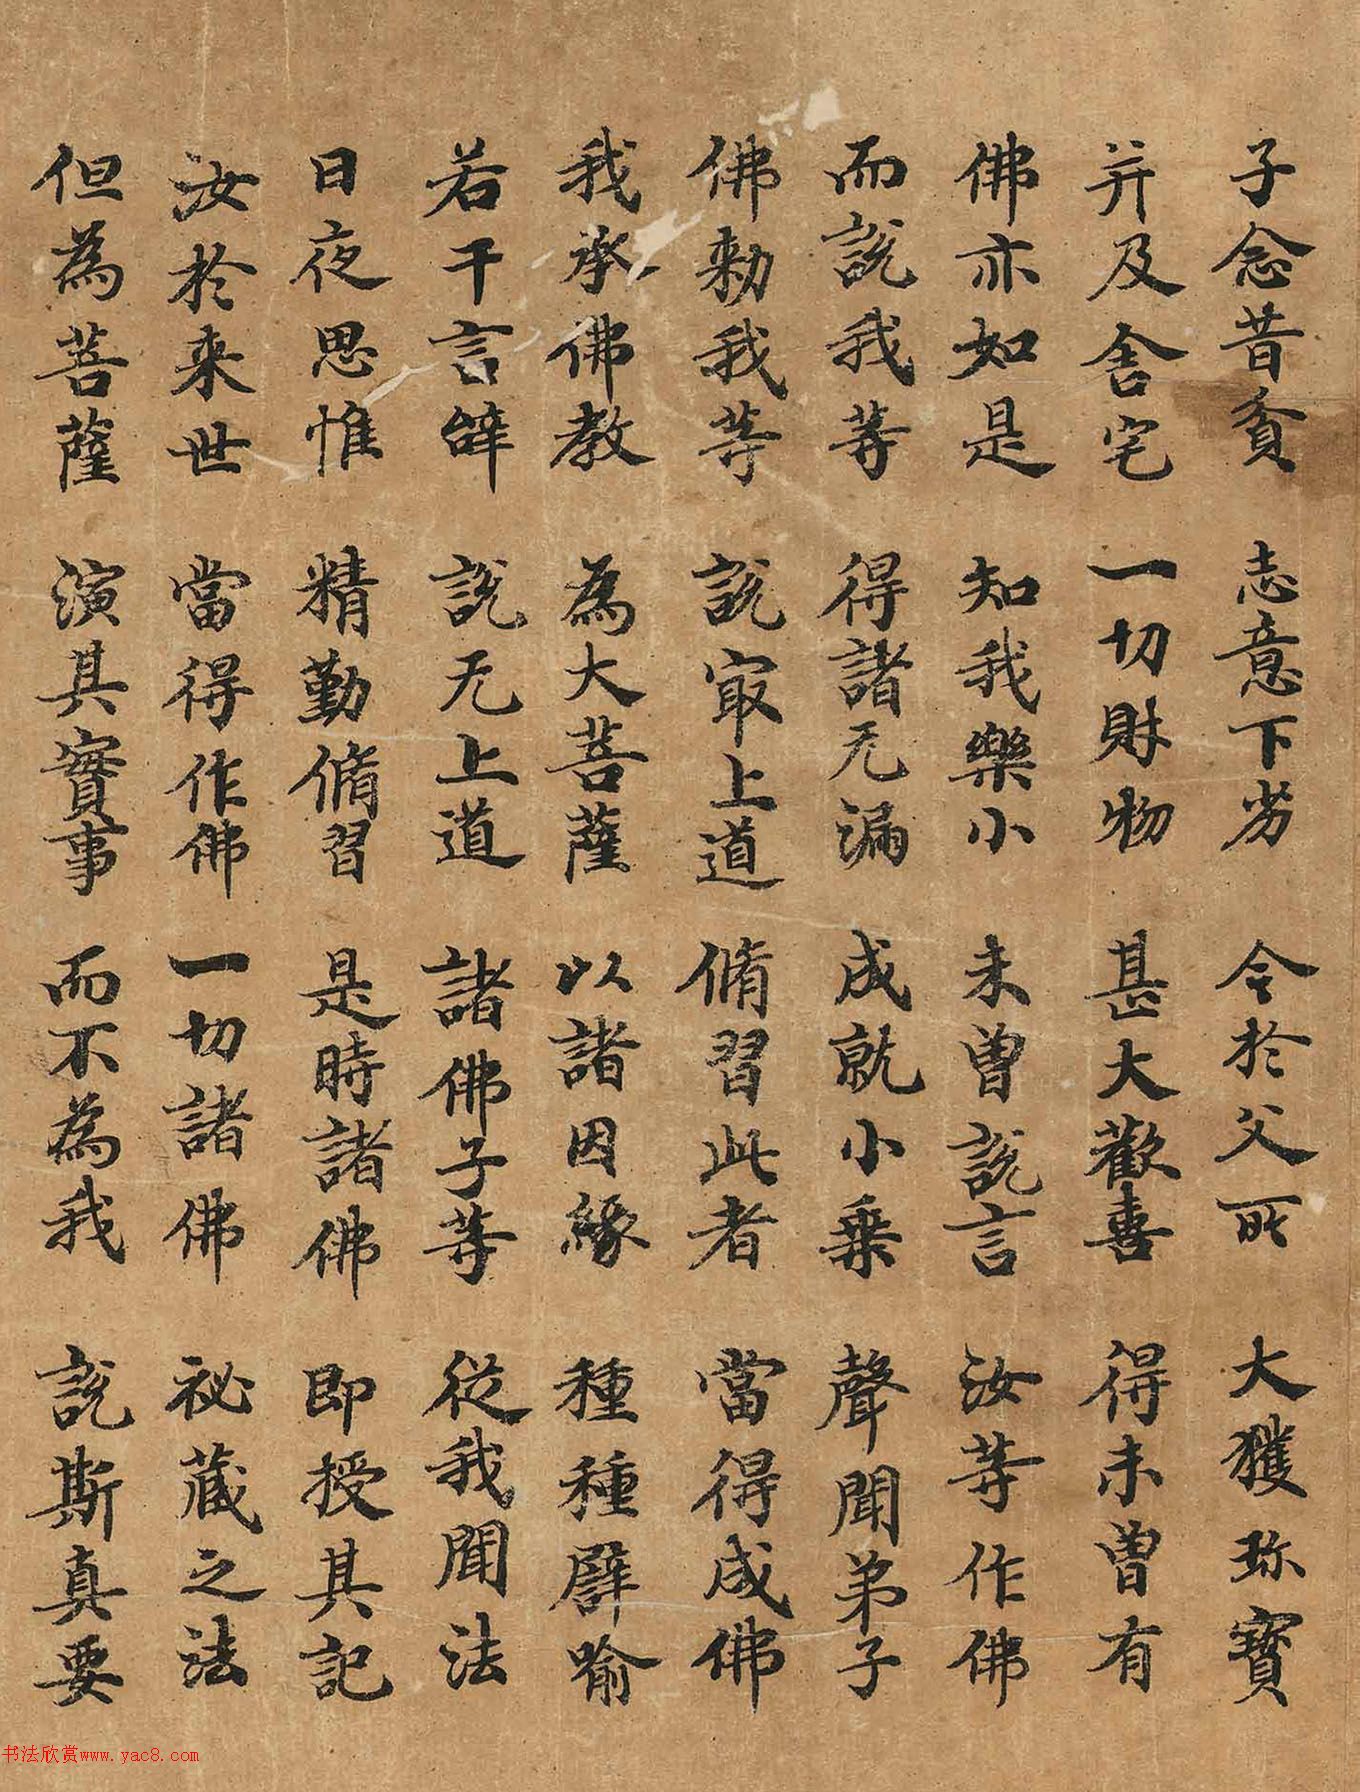 子念昔貧 志意下劣 今於父所 大獲珎寳
并及舎宅 一切財物 甚大歡喜 得未曽有
佛亦如是 知我樂小 未曽說言 汝等作佛
而說我等 得諸无漏 成就小乗 聲聞弟子
佛勑我等 說㝡上道 脩習此者 當得成佛
我承佛教 為大菩薩 以諸因緣 種種譬喻
若干言辝 說无上道 諸佛子等 從我聞法
日夜思惟 精勤脩習 是時諸佛 即授其記
汝於来世 當得作佛 一切諸佛 祕藏之法
但為菩薩 演其實事 而不為我 說斯真要
书法欣赏www.yac8.com